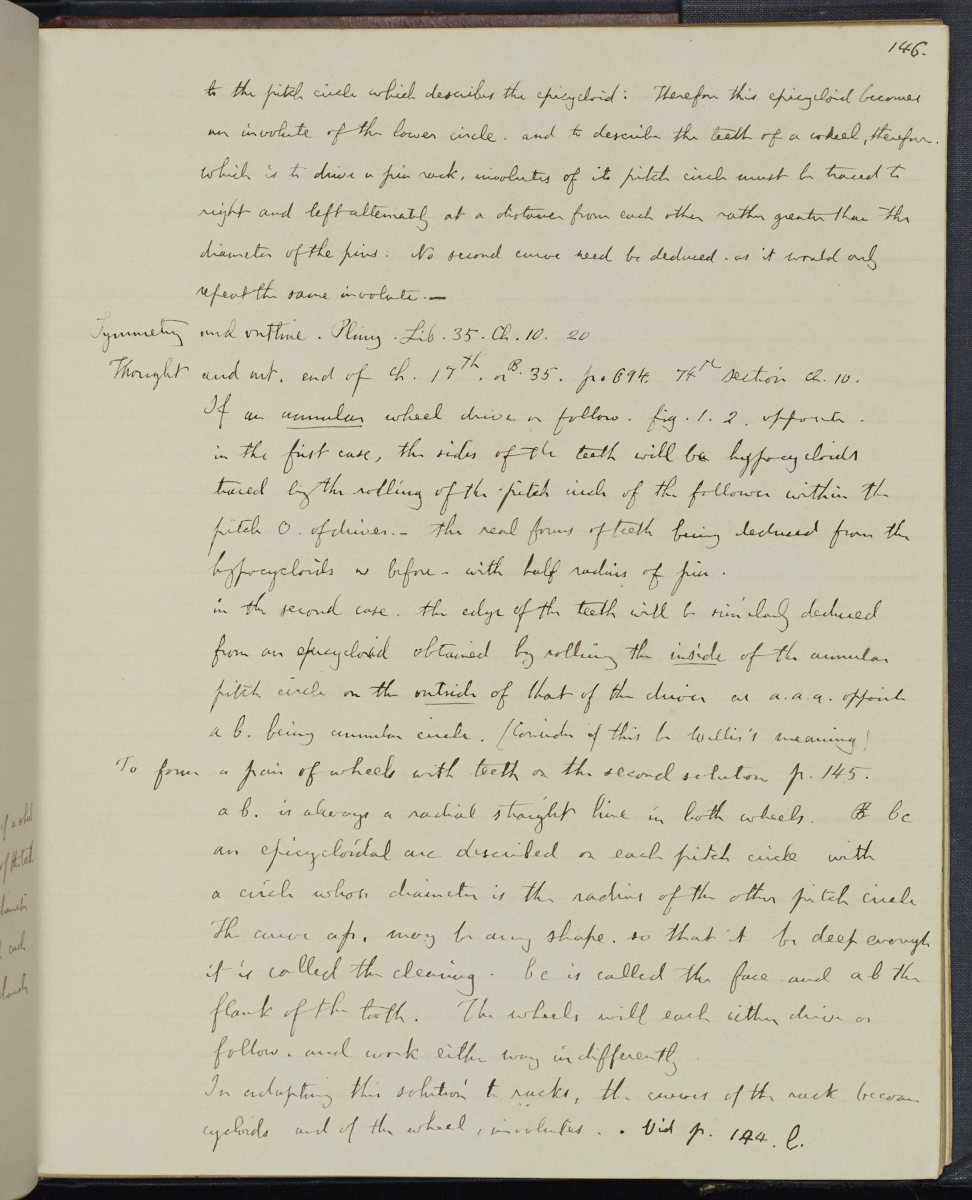 146.
to the pitch circle which describes the epicycloid: Therefore this epicycloid becomes
an involute of the lower circle. and to describe the teeth of a wheel, therefore.
which is to drive a pin rack, involutes of its pitch circle must be traced to
right and left alternately at a distance from each other rather greater than the
diameter of the pins: No second curve need be deduced. as it would only
repeat the same involute. —
Symmetry and outline. Pliny. Lib. 35. Ch. 10. 20
Thought and art. end of Ch. 17th. B. 35. p. 694. 74th section Ch. 10.
If an annular wheel drive or follow. fig. 1. 2. opposite.
in the first case, the sides of the teeth will be hypocycloids
traced by the rolling of the pitch circle of the follower within the
pitch O. of driver. - the real forms of teeth being deduced from the
hypocycloids as before - with half radius of pin.
in the second case. the edge of the teeth will be similarly deduced
from an epicycloid obtained by rolling the inside of the annular
pitch circle on the outside of that of the driver as a.a.a. opposite
a b. being annular circle. (Consider if this be Willis's meaning)
To form a pair of wheels with teeth on the second solution p. 145.
a b. is always a radial straight line in both wheels. bc
an epicycloidal arc described on each pitch circle with
a circle whose diameter is the radius of the other pitch circle
The curve ap. may be any shape. so that it be deep enough
it is called the clearing. bc is called the face and ab the
flank of the tooth. The wheels will each either drive or
follow. and work either way indifferently
In adapting this solution to racks, the curves of the rack become
cycloids and of the wheel, involutes. . Vid p. 144. l.
of a wheel
of the teeth
diameter
circle